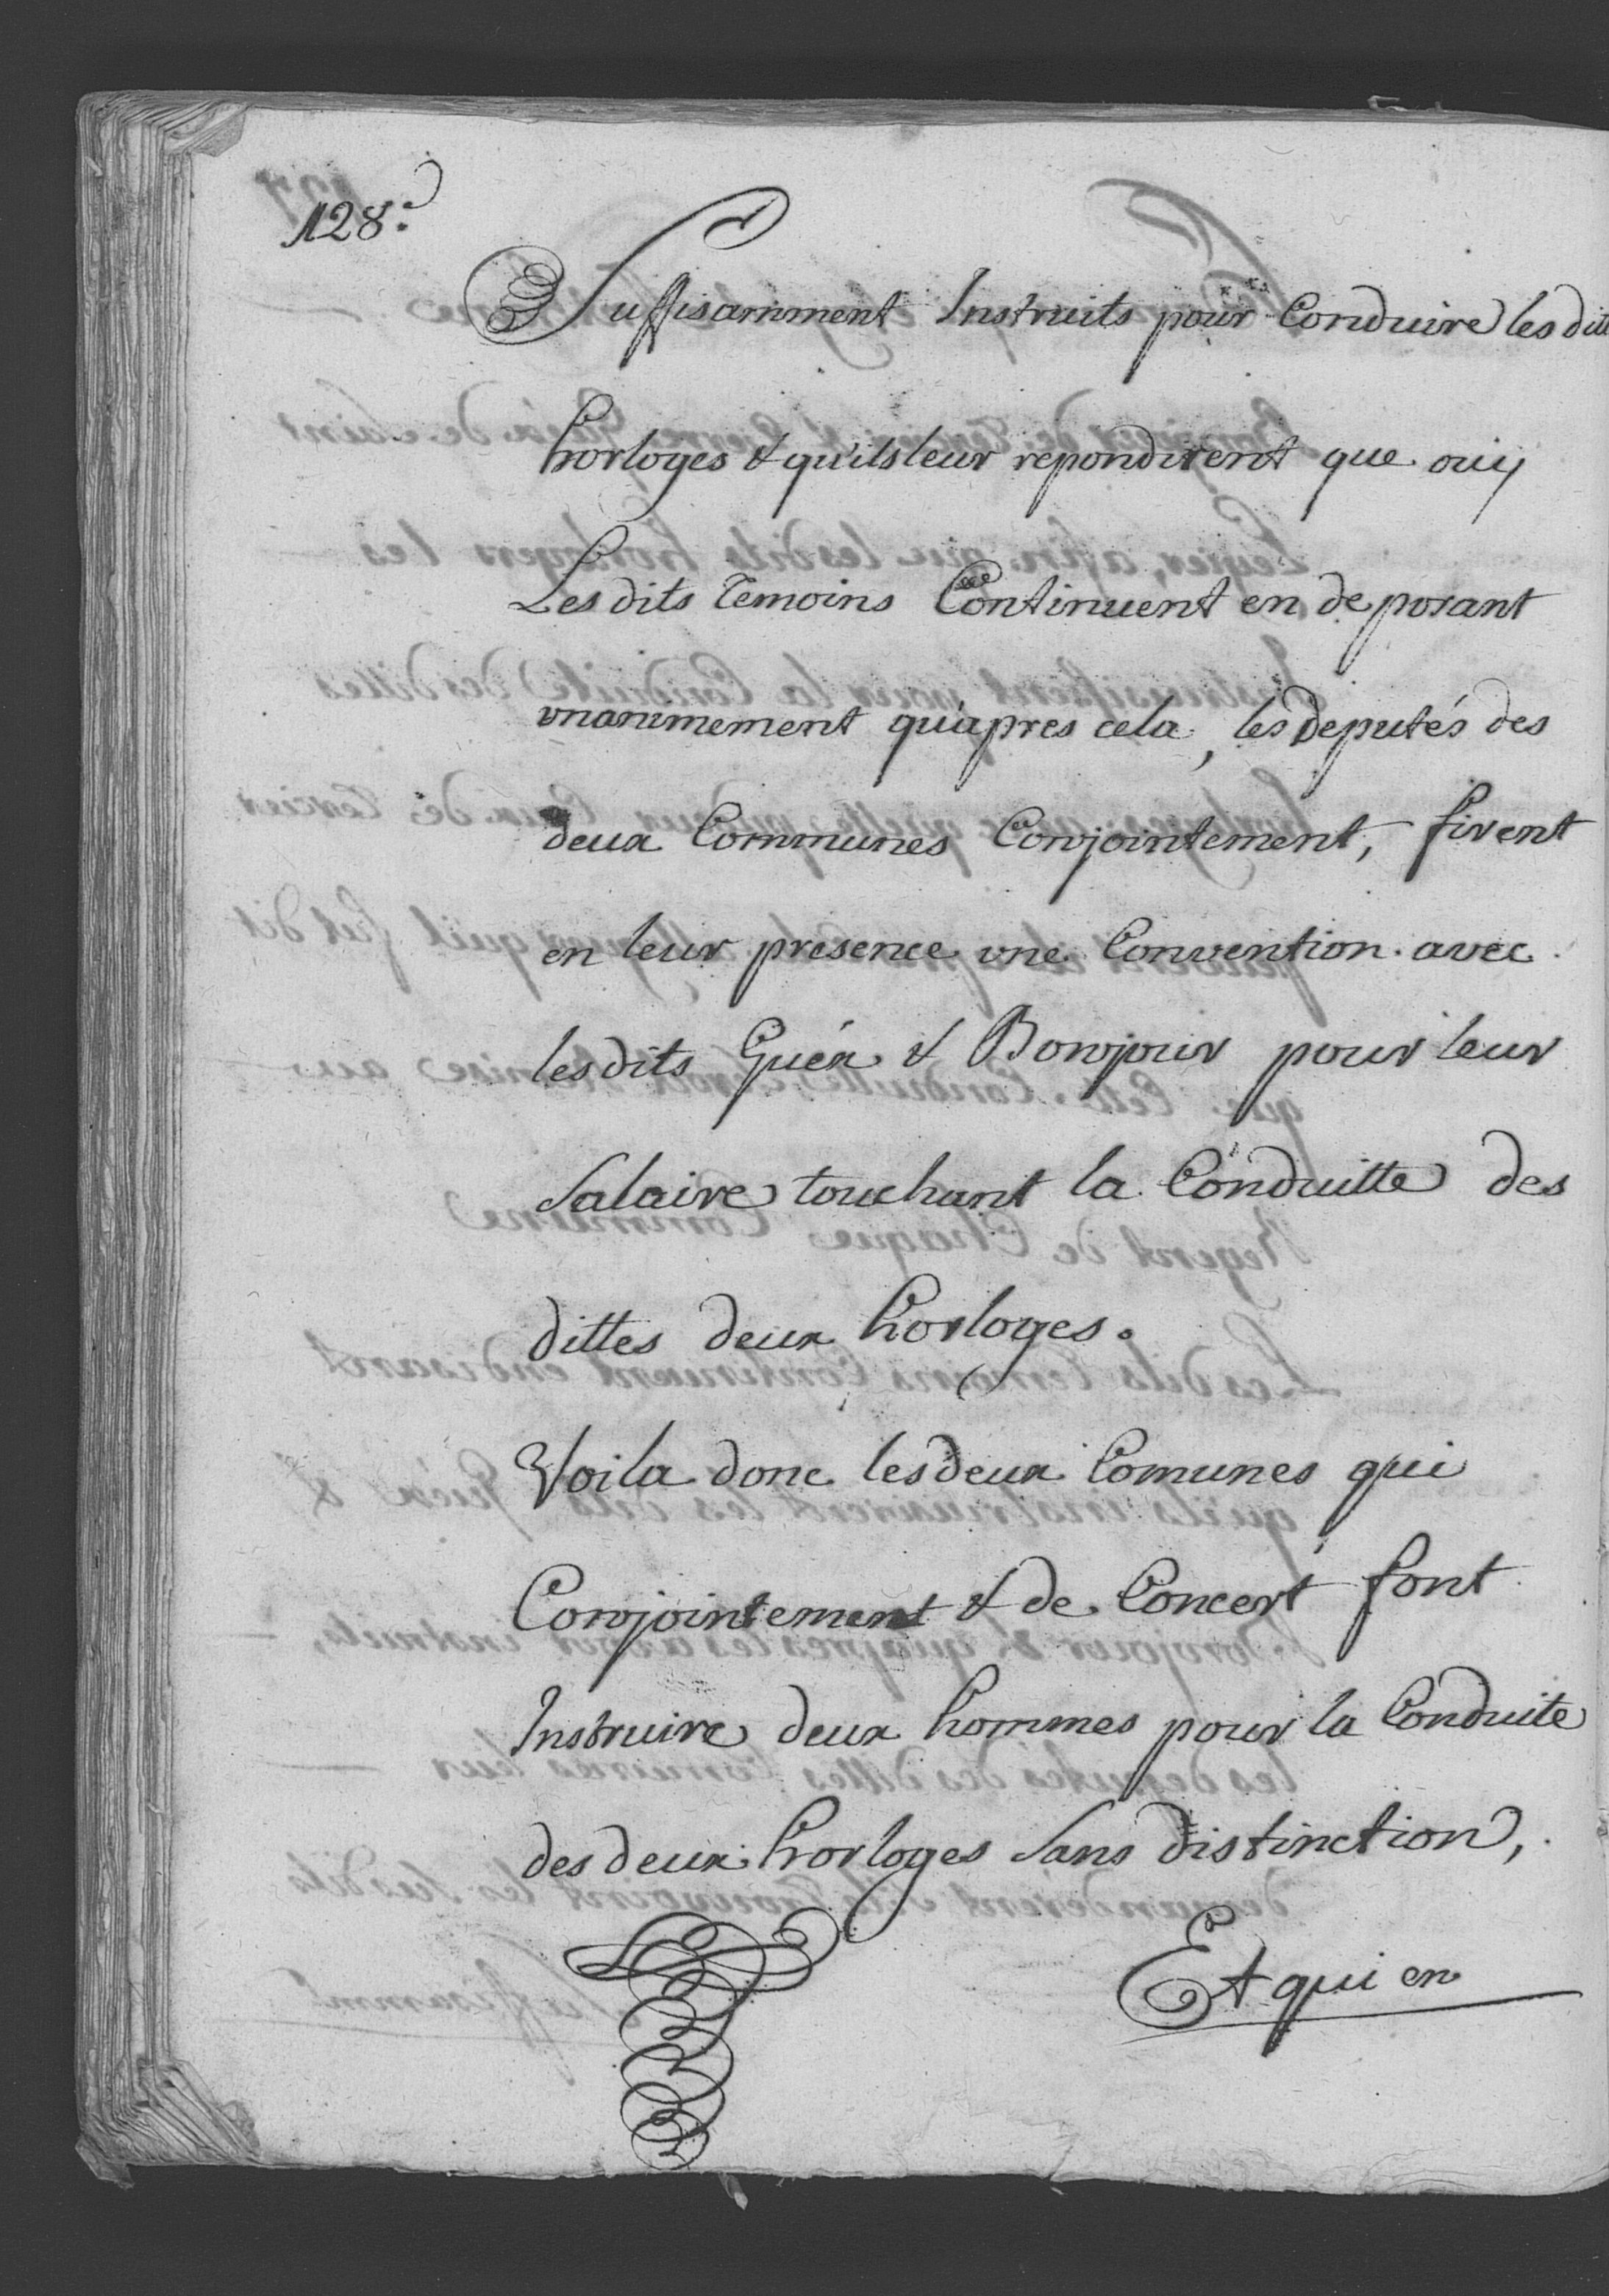 128.
Suffisamment Instruits pour Conduire les ditt
horloges & qu'ils leur repondirent que ouy
Les dits temoins Continuent en deposant
unanimement qu'apres cela, les deputés des
deux Communes Conjointement, firent
en leur presence une Convention avec
les dits Guéx & Bonjour pour leur
Salaire touchant la Conduitte des
dittes deux horloges.
Voila donc les deux Comunes qui
Conjointement & de Concert font
Instruire deux hommes pour la Conduite
des deux horloges Sans distinction,
Et qui en